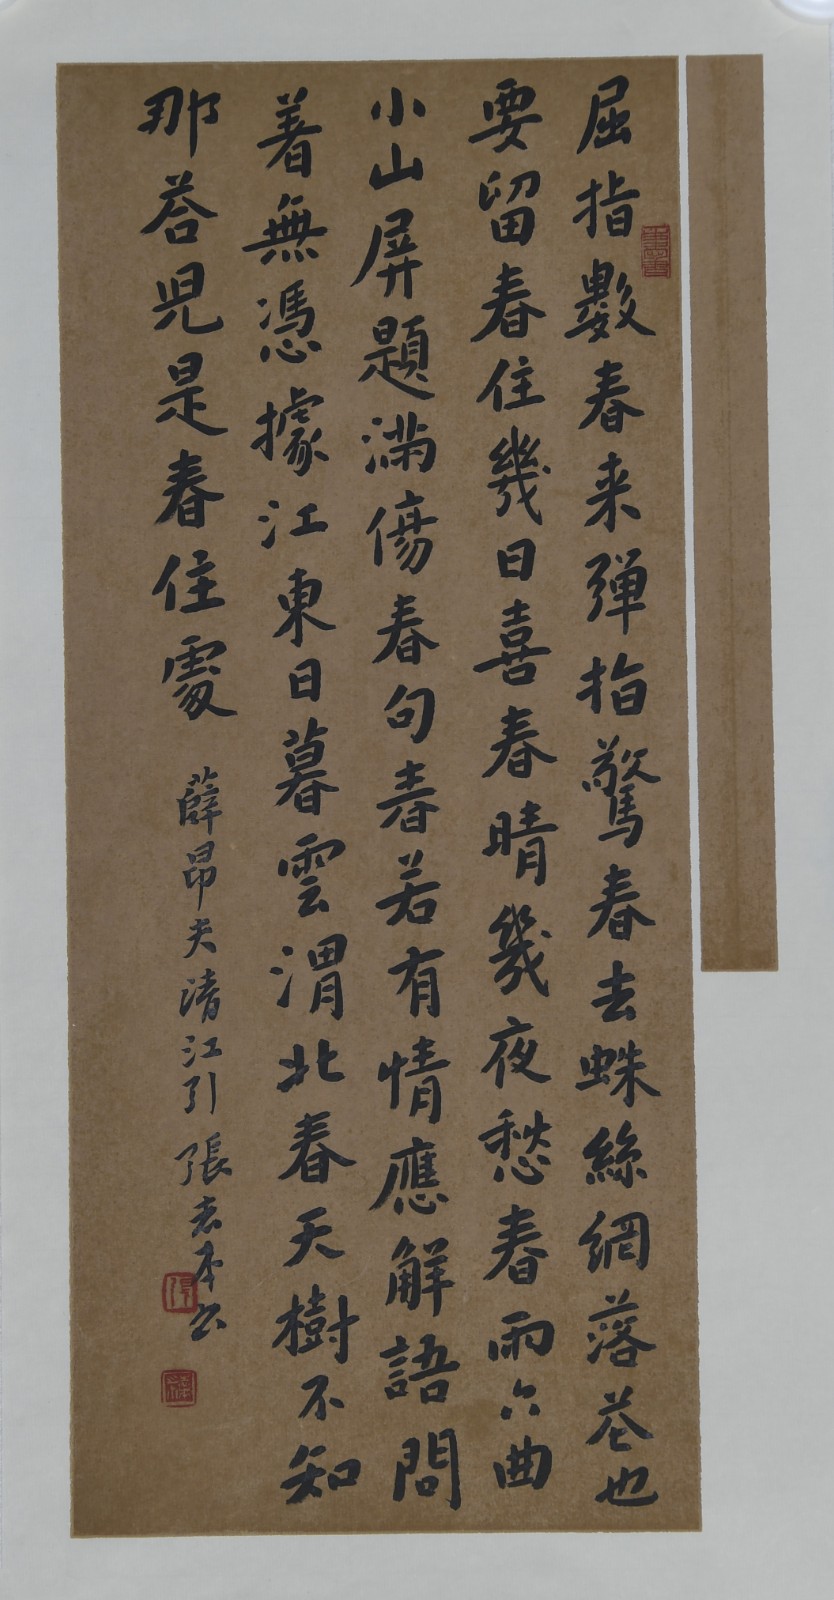 屈指數春来彈指驚春去蛛絲網落花也
要留春住幾日喜春晴幾夜愁春雨六曲
小山屏題滿傷春句春若有情應解語問
着無憑據江東日暮雲渭北春天樹不知
那荅兒是春住處
薛昂夫清江引張志本書